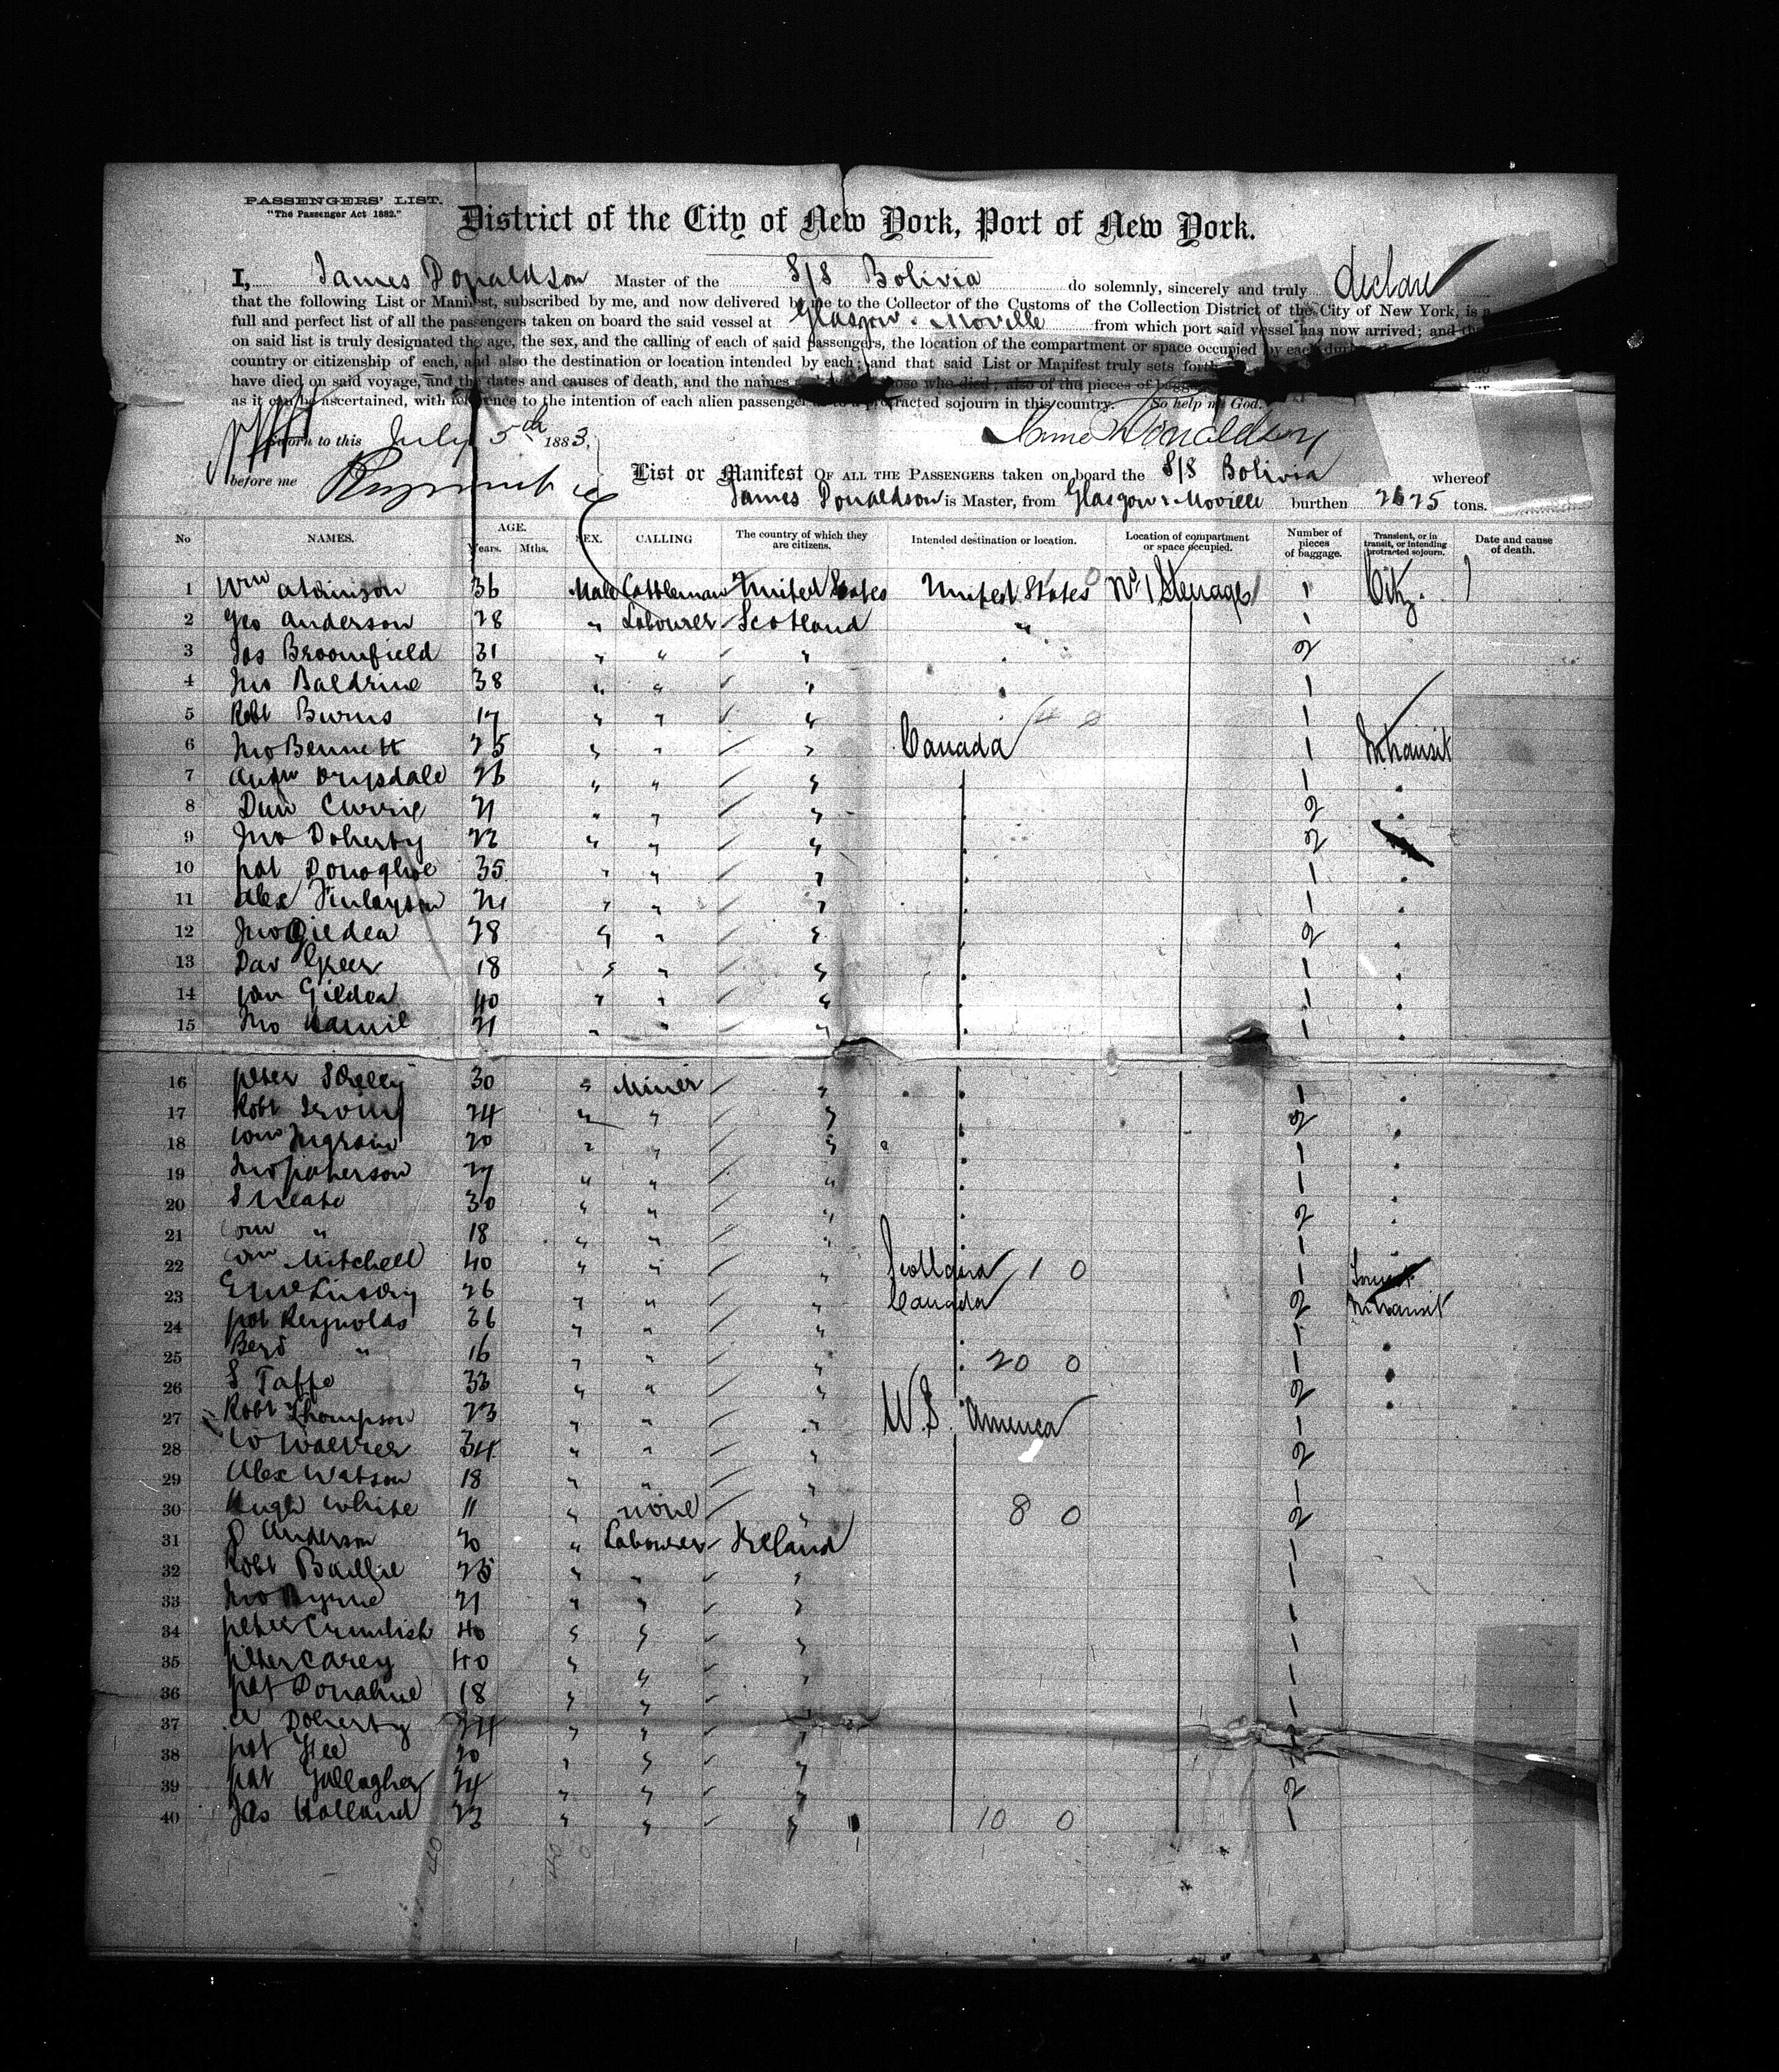 PASSENGERS' LIST.
"The Passenger Act 1882."
District of the City of New York, Port of New York.
I, James Donaldson Master of the S/S Bolivia do solemnly, sincerely and truly declare
that the following List or Manifest, subscribed by me, and now delivered by me to the Collector of the Customs of the Collection District of the City of New York, is a
full and perfect list of all the passengers taken on board the said vessel at Glasgow & Moville from which port said vessel has now arrived; and that
on said list is truly designated the age, the sex, and the calling of each of said passengers, the location of the compartment or space occupied by each
country or citizenship of each, and also the destination or location intended by each; and that said List or Manifest truly sets forth
have died on said voyage, and the dates and causes of death, and the names those who died; also of the pieces of baggage
as it can be ascertained, with reference to the intention of each alien passenger as to a protracted sojourn in this country. So help me God.
Sworn to this July 5th 1883 James Donaldson
before me
List or Manifest OF ALL THE PASSENGERS taken on board the S/S Bolivia whereof
James Donaldson is Master, from Glasgow & Moville burthen 2625 tons.
No NAMES. AGE. Years. Mths. SEX. CALLING The country of which they are citizens. Intended destination or location. Location of compartment or space occupied. Number of pieces of baggage. Transient, or in transit, or intending protracted sojourn. Date and cause of death.
1 Wm Atkinson 36 Male Cattleman United States United States No 1 Steerage 1 Citz.
2 Geo Anderson 28 " Labourer Scotland " 1
3 Jas Broomfield 31 " " " 2
4 Jno Baldrine 38 " " " 1
5 Robt Burns 17 " " " 1
6 Jno Bennett 25 " " " Canada 1 In transit
7 Andw Drysdale 26 " " " 1
8 Dun Currie 21 " " " 2
9 Jno Doherty 22 " " " 2
10 pat Donoghoe 35 " " " 1
11 Alex Finlayson 21 " " " 1
12 Jno Gildea 28 " " " 2
13 Dav Greer 18 " " " 1
14 Gildea 40 " " " 1
15 Jno 21 " " " 1
16 peter 30 " Miner " 1
17 Robt Irving 24 " " " 2
18 Wm Ingram 20 " " " 1
19 Jno 27 " " " 1
20 30 " " " 2
21 Wm " 18 " " " 1
22 Wm Mitchell 40 " " " Scotland 1 0 1
23 26 " " " Canada 2 In transit
24 pat Reynolds 36 " " " 1
25 " 16 " " " 20 0 1
26 S Taffe 33 " " " 2
27 Robt Thompson 23 " " " U.S. America 1
28 W Walker 34 " " " 2
29 Alex Watson 18 " " " 1
30 Hugh White 11 " none " 8 0 2
31 Anderson 20 " Labourer Ireland 1
32 Robt Baillie 25 " " " 1
33 Jno Byrne 21 " " " 1
34 peter Crumlish 40 " " " 1
35 peter Carey 40 " " " 1
36 pat Donahue 18 " " " 1
37 A Doherty 24 " " " 1
38 pat 20 " " "
39 pat Gallagher 24 " " " 2
40 Jas Holland 23 " " " 10 0 1